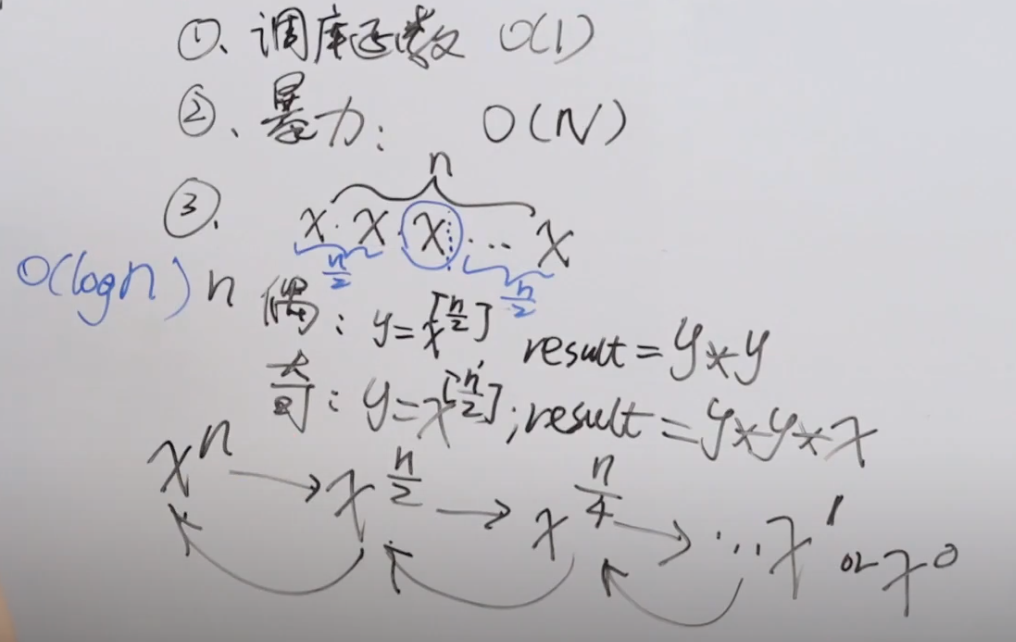 ①、调库函数 O(1)
②、暴力: O(N)
③. n
x·x·x·...x
n/2 n/2
O(logn) n 偶: y=x^[n/2] result=y*y
奇: y=x^[n/2]; result=y*y*x
x^n → x^(n/2) → x^(n/4) → ...x^1 or x^0